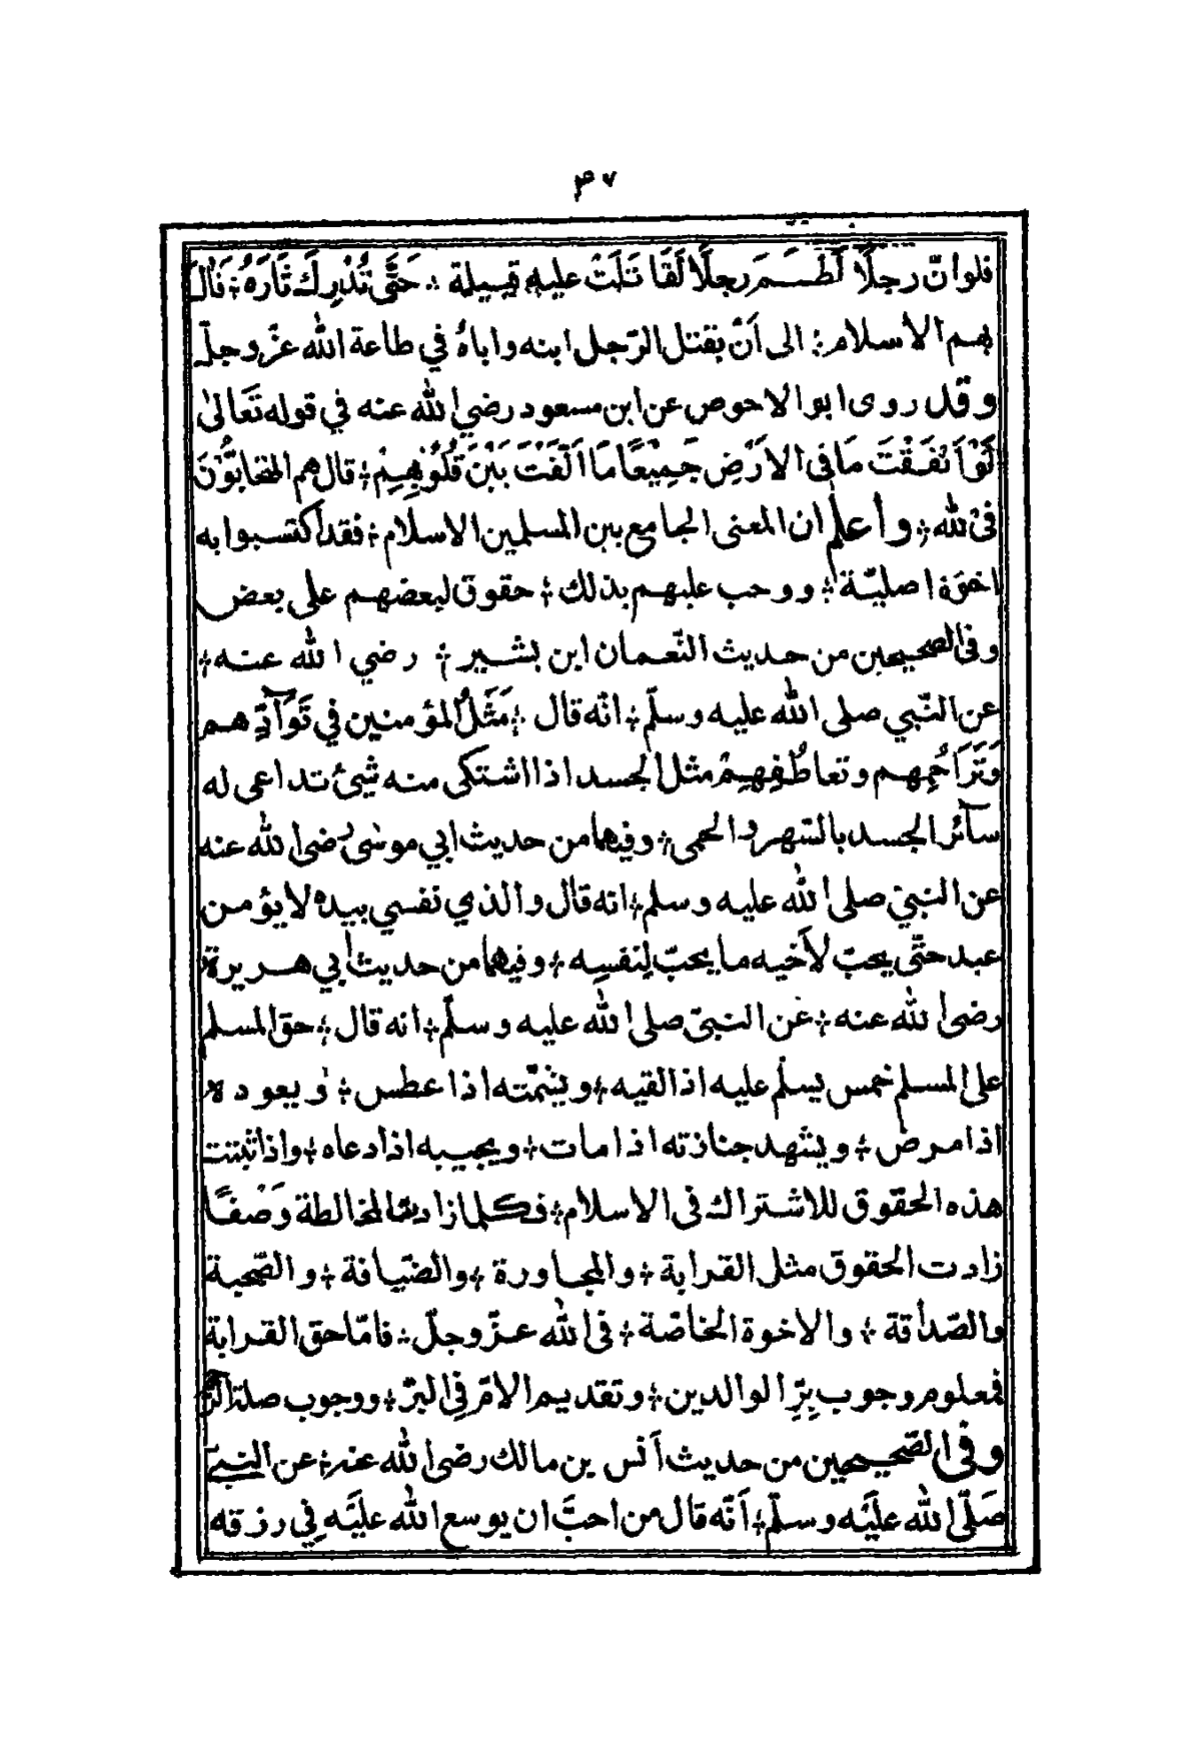 ٣٧
فلوانّ رجلًا لَطَمَ رجلًا لَقَا تَلَتْ عليه قبيلة ؞ حَتَّى تُدْرِكَ ثَارَهُ؞ فَاٰلَ
بهم الاسلام؞ الى اَنْ يقتل الرّجل ابنه واباهُ في طاعة الله عزّوجلّ
وقد روى ابو الاحوص عن ابن مسعود رضي الله عنه في قوله تَعَالىٰ
لَوْاَنْفَقْتَ مَا فى الارْضِ جَمِيْعًا مَا اَلَّفْتَ بَيْنَ قُلُوْبِهِمْ؞ قال هم المتحابّوْنَ
فى الله؞ واعلم ان المعنى الجامع بين المسلمين الاسلام؞ فقد اكتسبوا به
اخوّة اصليّة؞ ووجب عليهم بذلك؞ حقوق لبعضهم على بعض
وفى الصحيحين من حديث النّعمان ابن بشير؞ رضي الله عنه؞
عن النّبي صلى الله عليه وسلّم؞ انّه قال ؞ مَثَلُ المؤمنين في تَوَآدِّهم
وَتَرَاحُمِهم وتعاطُفِهِمْ مثل الجسد اذا اشتكى منه شيئ تداعى له
سآئر الجسد بالسّهر والحمى؞ وفيهما من حديث ابي موسىٰ رضى الله عنه
عن النبيّ صلى الله عليه وسلم؞ انه قال والذي نفسي بيده لا يؤمن
عبد حتّى يحبّ لاَخيه ما يحبّ لِنفسِه ؞ وفيهما من حديث أبي هريرة
رضى الله عنه ؞ عَن النبىّ صلى الله عليه وسلّم؞ انه قال ؞ حق المسلم
على المسلم خمس يسلّم عليه اذا لقيه ؞ ويشمّته اذا عطس ؞ وَيعوده
اذا مرض ؞ ويشهد جنازته اذا مات ؞ ويجيبه اذا دعاه ؞ واذا ثبتت
هذه الحقوق للاشتراك فى الاسلام؞ فكلما زادت المخالطة وَصْفًا
زادت الحقوق مثل القرابة ؞ والمجاورة ؞ والضّيافة ؞ والصّحبة
والصّداقة ؞ والاخوة الخاصّة ؞ فى الله عزّوجلّ ؞ فامّا حق القرابة
فمعلوم وجوب بِرِّ الوالدين ؞ وتقديم الامّ فِي البرّ ؞ ووجوب صلة
وفى الصّحيحين من حديث اَنس بن مالك رضى الله عنه؞ عن النبىّ
صَلّى الله عليْه وسلّم؞ اَنّه قال من احبَّ ان يوسع الله عليْه فِي رزقه